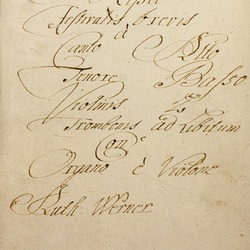 Festivalis brevis
à
Canto Alto
Tenore Basso
Violinis 2
Trombonis ad libitum
Con
Organo è Violone
Auth: Werner